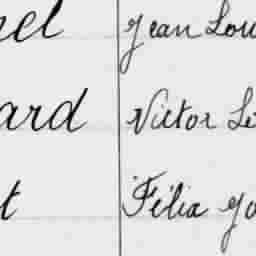 Jean Lou
ard Victor Lé
t Félia